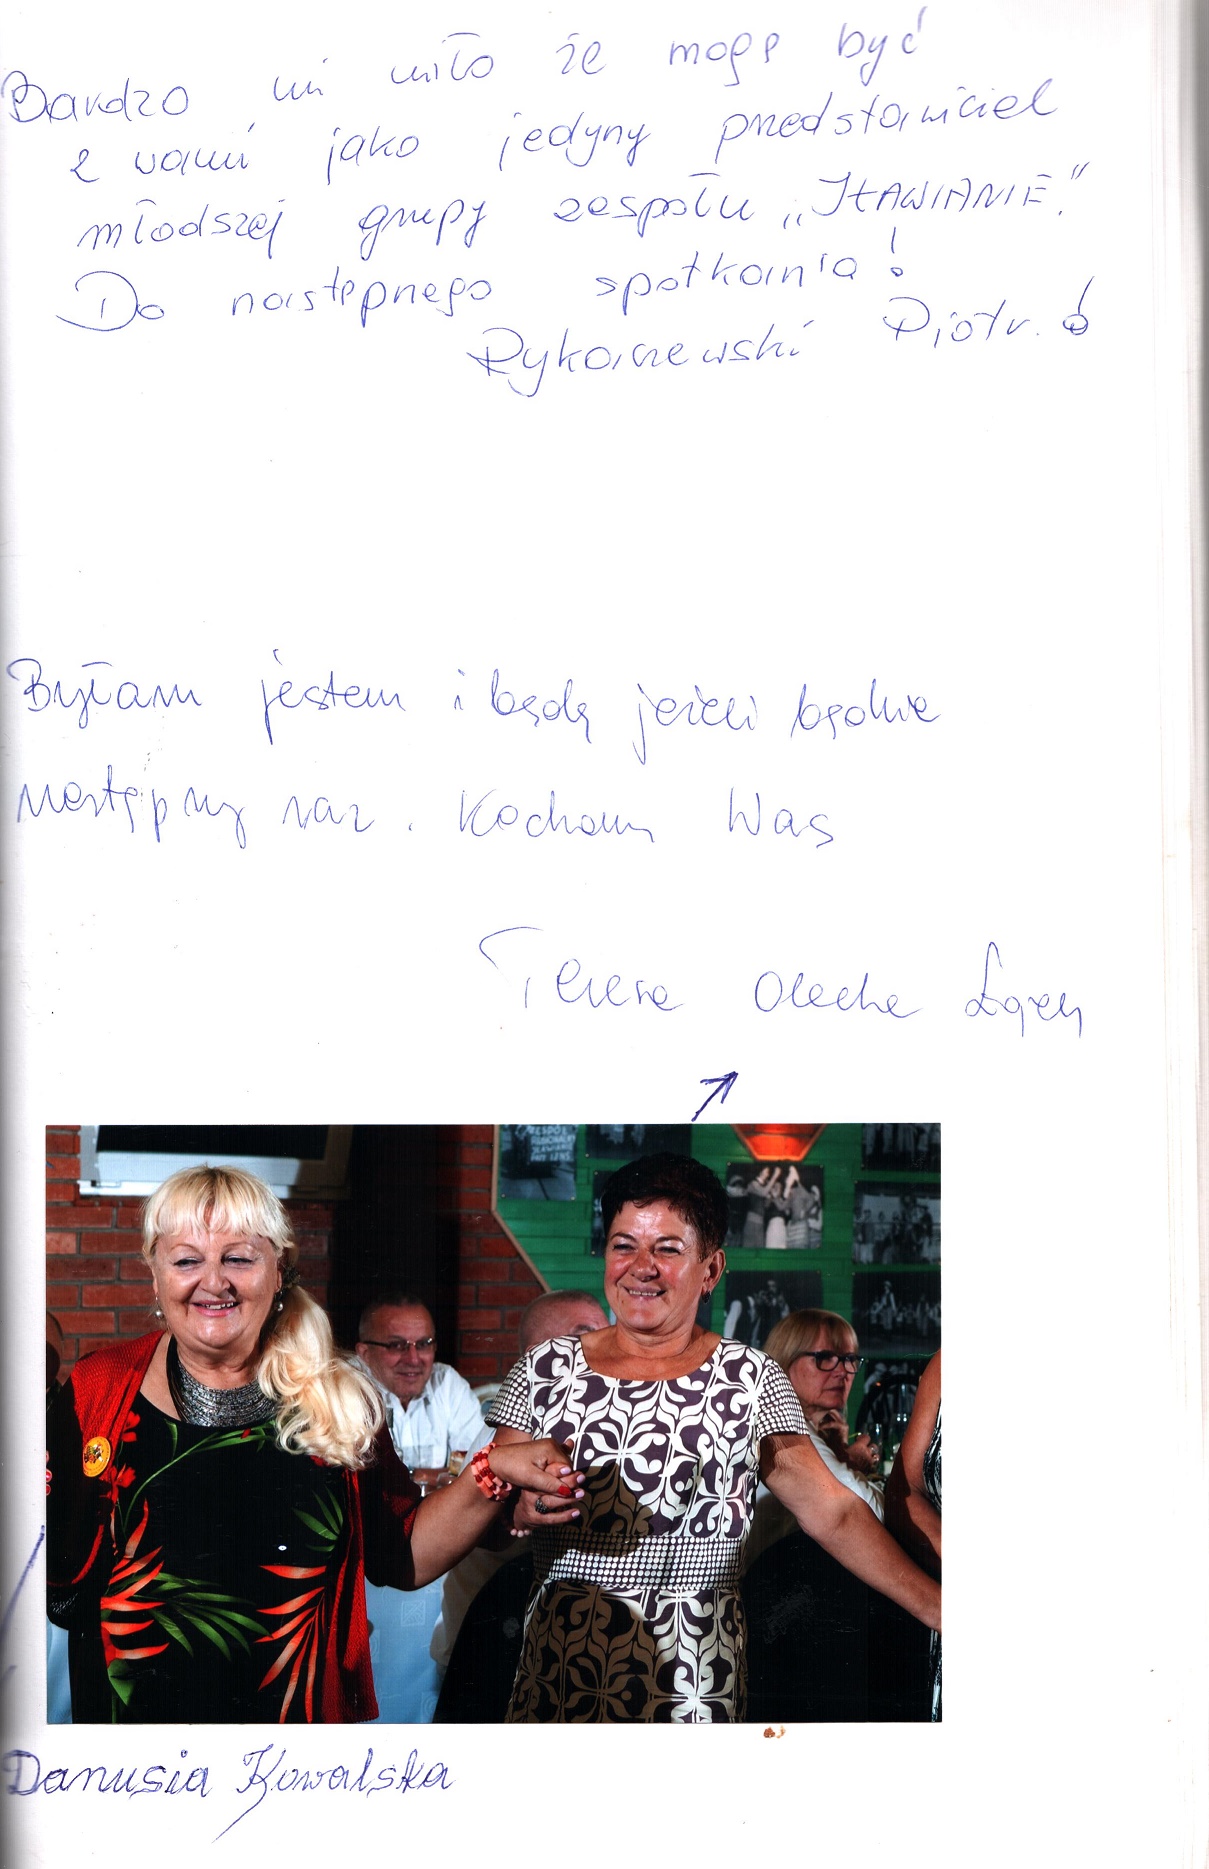 Bardzo mi miło że mogę być
z wami jako jedyny przedstawiciel
młodszej grupy zespołu „IŁAWIANIE".
Do następnego spotkania!
Rykaczewski Piotr.
Byłam jestem i będę jeżeli będzie
następny raz. Kocham Was
Teresa
ZESPÓŁ
Danusia Kowalska